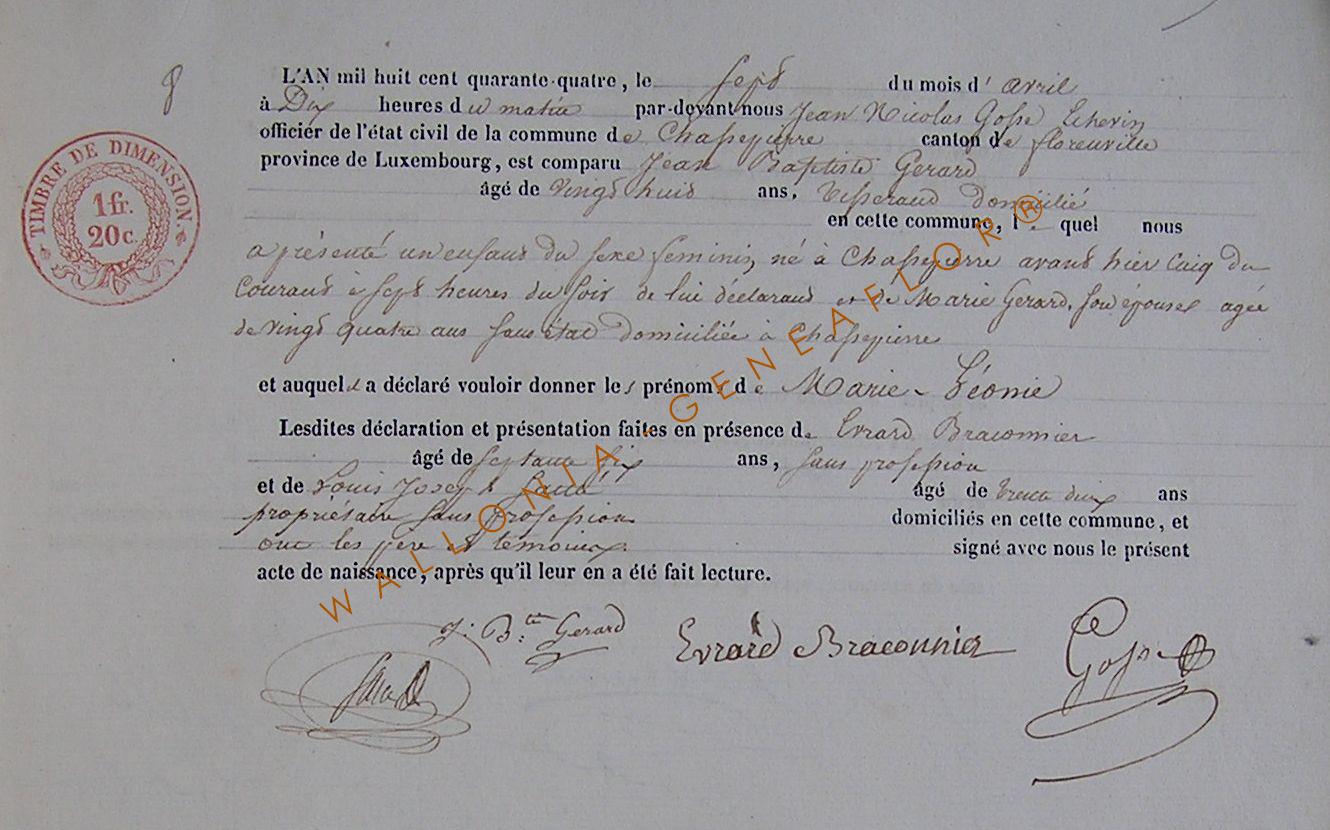 8
L'AN mil huit cent quarante-quatre, le sept du mois d' avril
à Dix heures du matin par-devant nous Jean Nicolas Gosse Echevin
officier de l'état civil de la commune de Chassepierre canton de florenville
province de Luxembourg, est comparu Jean Baptiste Gerard
âgé de vingt huit ans, Tisserand Domicilié
en cette commune, l e quel nous
a présenté un enfant du sexe feminin, né à Chassepierre avant hier cinq du
Courant à sept heures du soir de lui déclarant et de Marie Gerard, son épouse agée
de vingt quatre ans sans état domiciliée à Chassepierre
et auquel a déclaré vouloir donner les prénoms de Marie - Léonie
Lesdites déclaration et présentation faites en présence de Evrard Braconnier
âgé de septante six ans, sans profession
et de Louis Joseph âgé de trente deux ans
propriétaire sans profession domiciliés en cette commune, et
ont les père et témoins signé avec nous le présent
acte de naissance, après qu'il leur en a été fait lecture.
J. B.te Gerard Evrard Braconnier Gosse
TIMBRE DE DIMENSION.
1 fr.
20 c.
WALLONIA-GENEAFLOR®